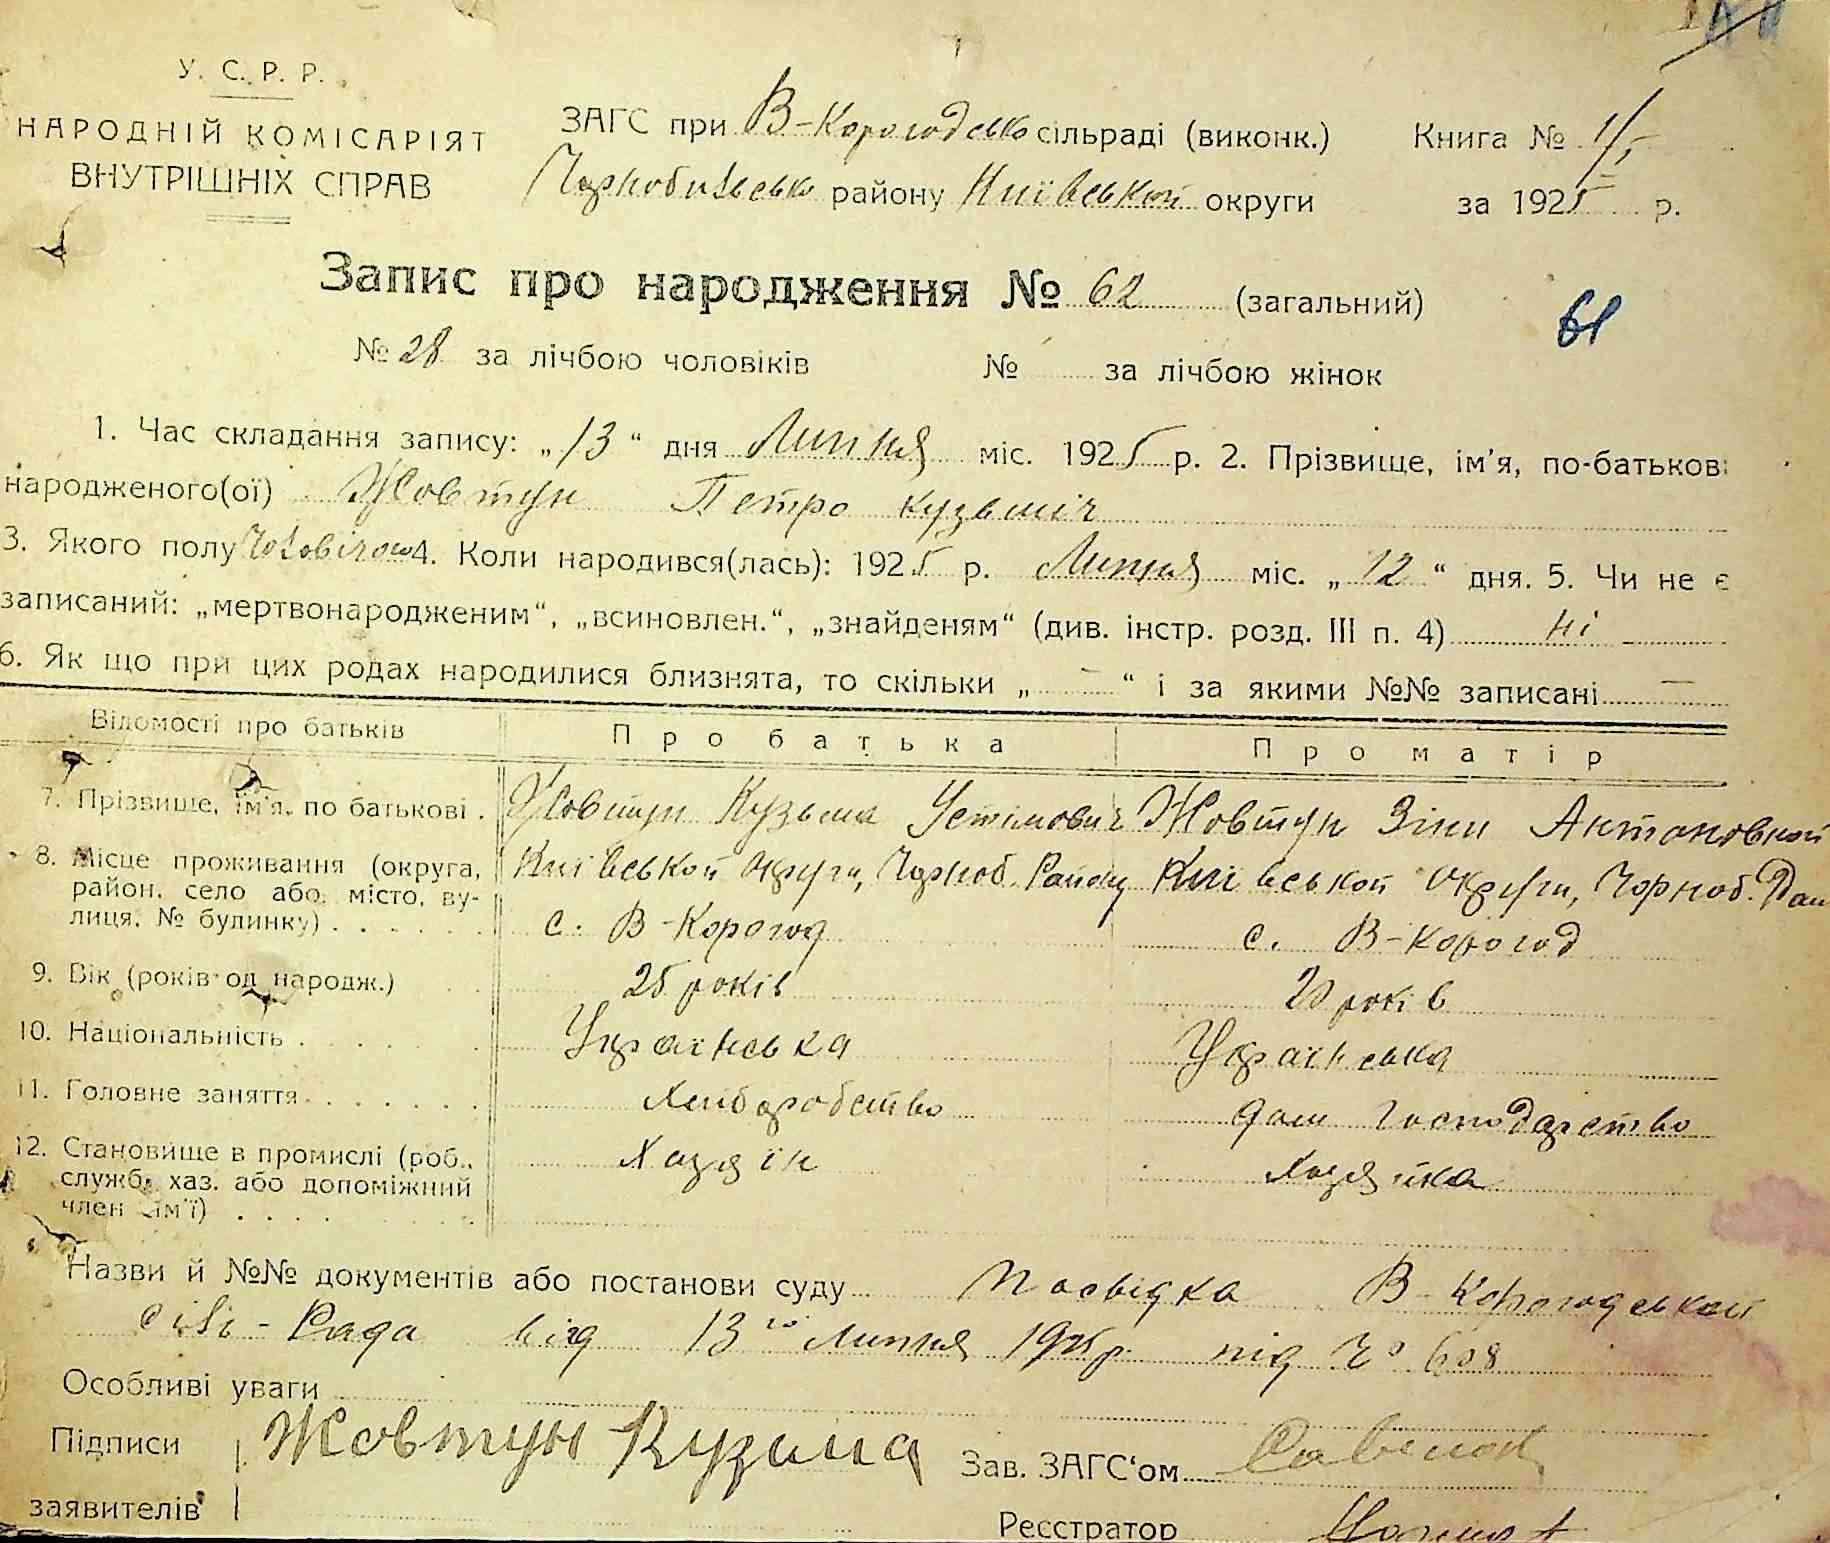 У. С. Р. Р.
НАРОДНІЙ КОМІСАРІЯТ
ВНУТРІШНІХ СПРАВ
ЗАГС при В-Корогодсько сільраді (виконк.)
Чорнобильсько району Київської округи
Книга № 1/5
за 1925 р.
Запис про народження № 62 (загальний)
61
№ 28 за лічбою чоловіків № за лічбою жінок
1. Час складання запису: „13“ дня Липня міс. 1925 р. 2. Прізвище, ім'я, по-батькові
народженого(ої) Жовтун Петро Кузьміч
3. Якого полу 4. Коли народився(лась): 1925 р. Липня міс. „12“ дня. 5. Чи не є
записаний: „мертвонародженим“, „всиновлен.“, „знайденям“ (див. інстр. розд. III п. 4) ні
6. Як що при цих родах народилися близнята, то скільки „ — “ і за якими №№ записані —
Відомості про батьків Про батька Про матір
7. Прізвище, ім'я, по батькові . Жовтун Кузьма Устімович Жовтун Зіни Антоновной
8. Місце проживання (округа, район, село або, місто, вулиця, № будинку) . . . . . . Київської Округи, Чорноб. Району Київської Округи, Чорноб. Рай
с. В-Корогод с. В-Корогод
9. Вік (років од народж.) 25 років 20 років
10. Національність . . . . . Українська Українська
11. Головне заняття . . . . . . Хліборобство дом господарство
12. Становище в промислі (роб., служб. хаз. або допоміжний член сім'ї) . . . . . . Хазяїн Хазяйка
Назви й №№ документів або постанови суду Посвідка В-Корогодської
сіль-Рада від 13го Липня 1925р. під № 608
Особливі уваги
Підписи Жовтун Кузьма Зав. ЗАГС‘ом
заявителів Реєстратор